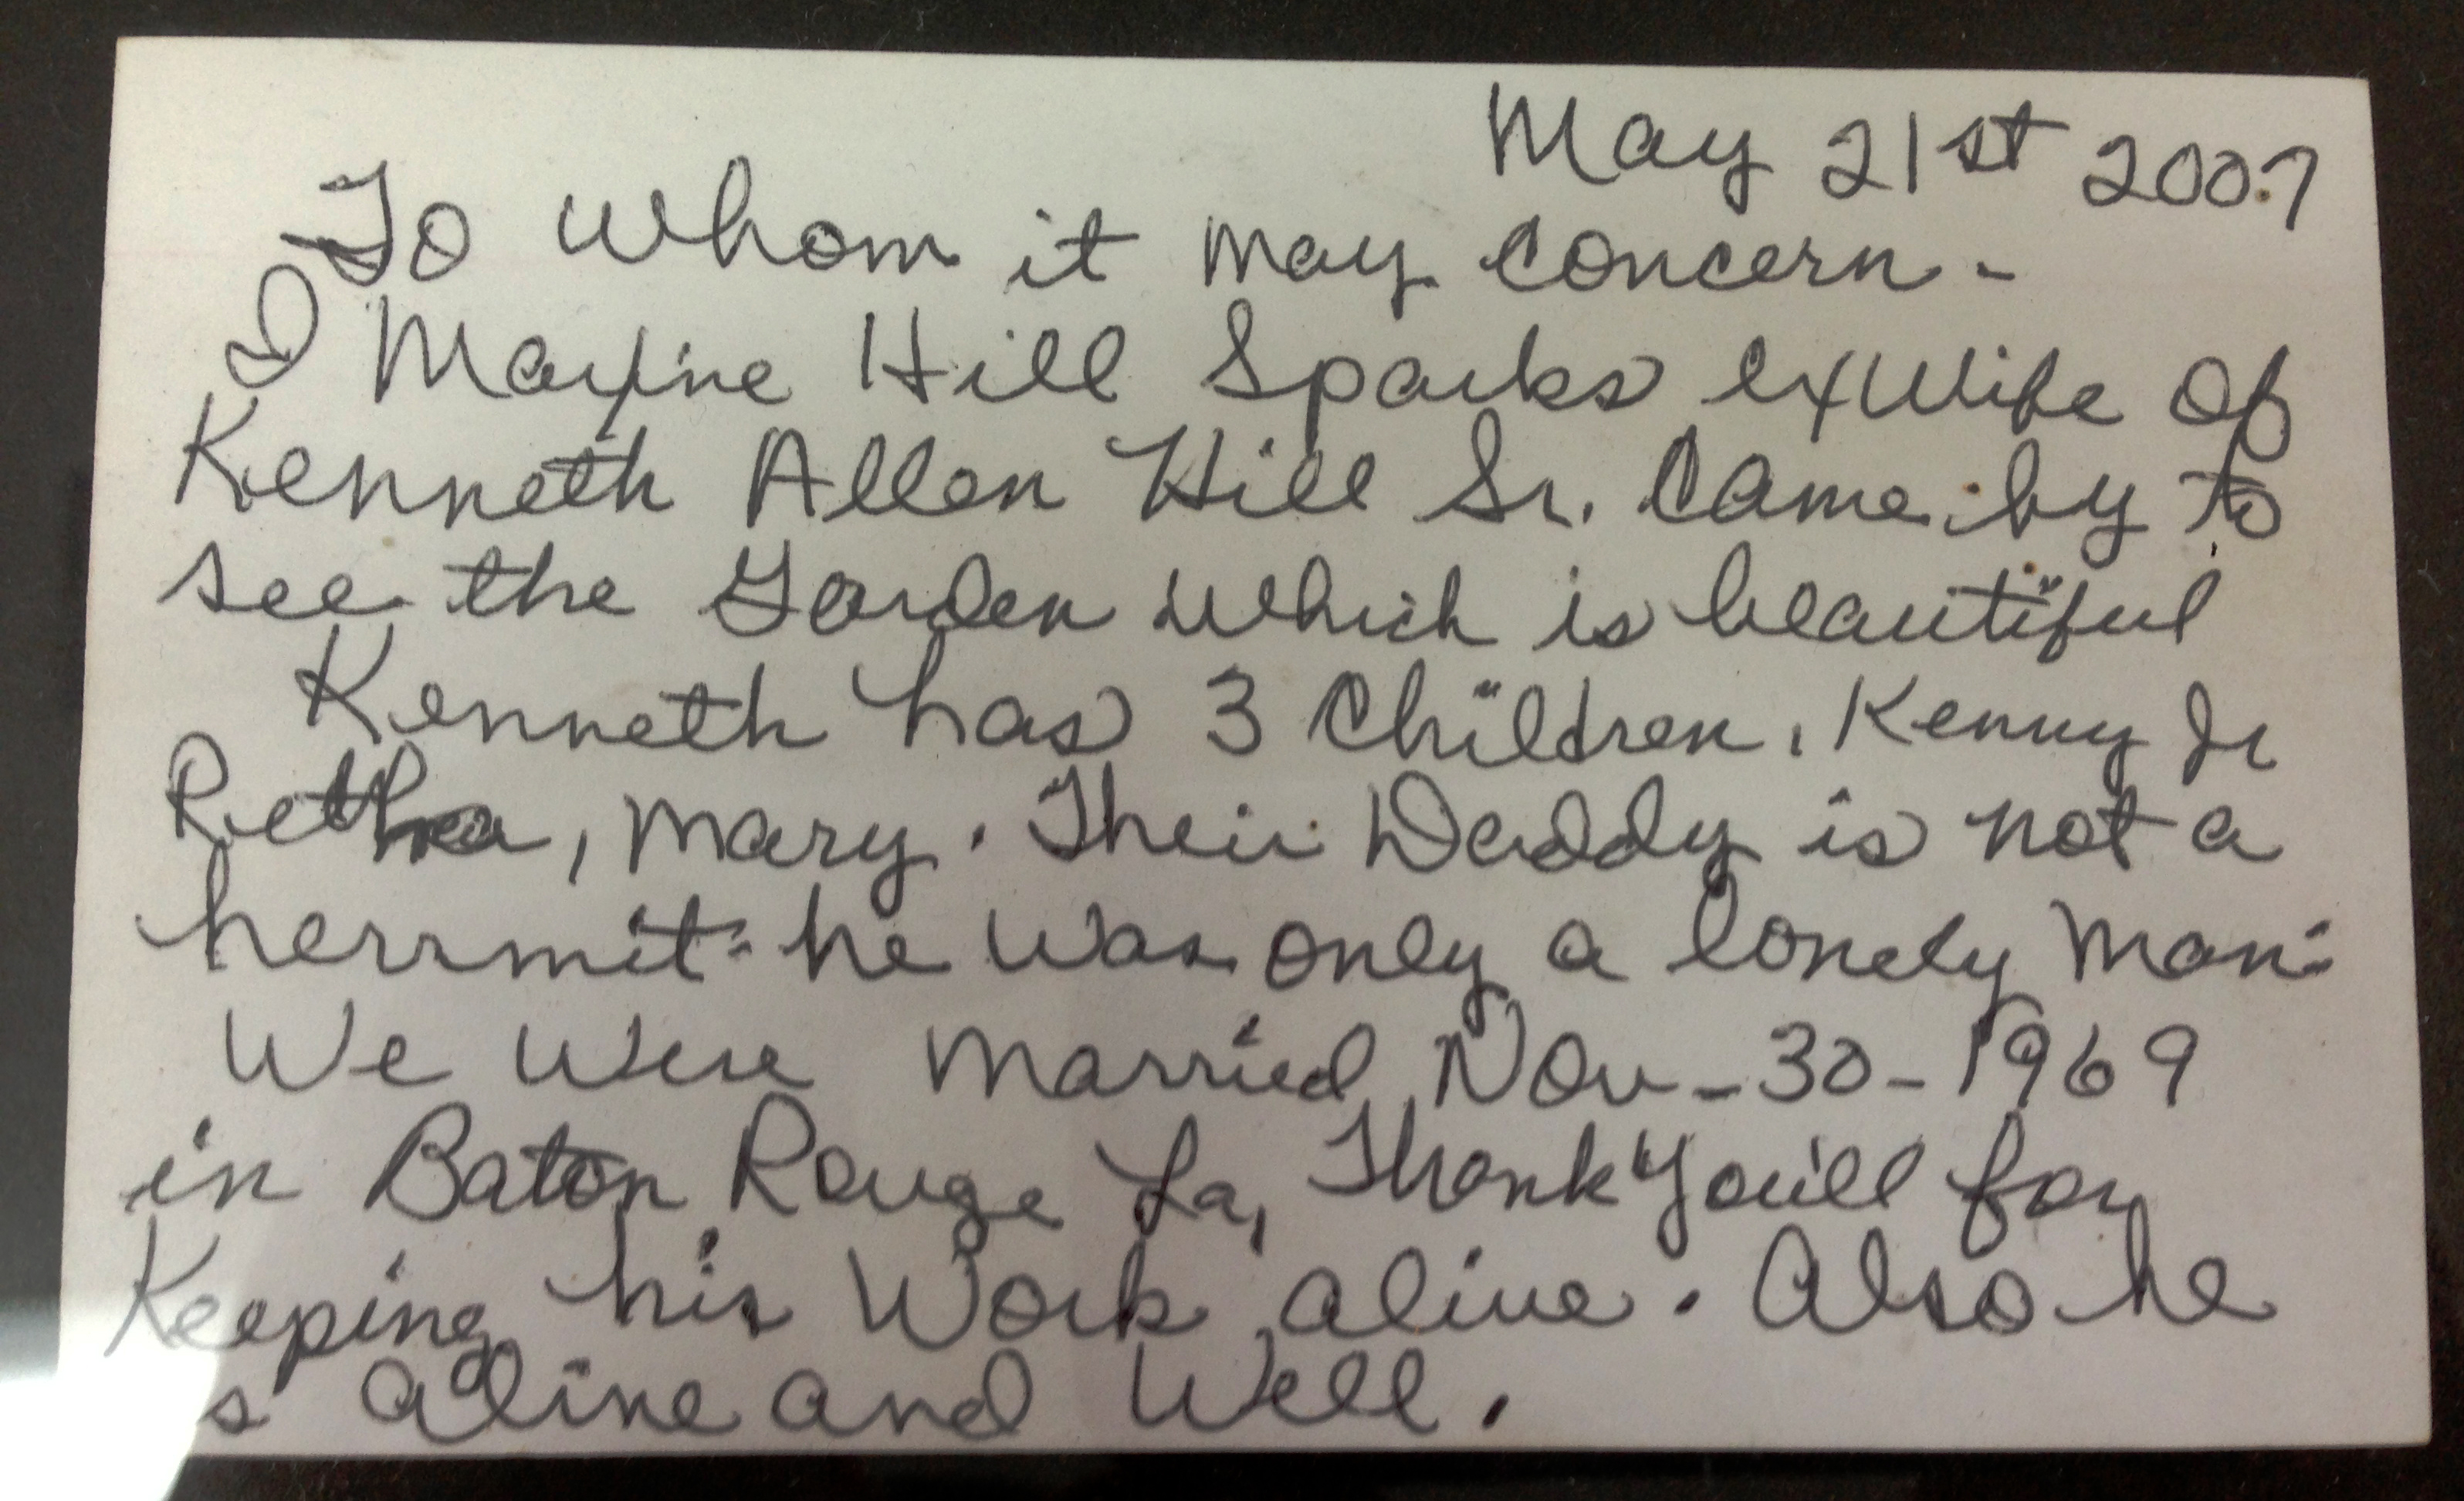 May 21st 2007
To whom it may concern -
I Maxine Hill Sparks exwife of
Kenneth Allen Hill Sr. Came by to
see the Garden which is beautiful
Kenneth has 3 Children, Kenny Jr
Retha, Mary. Their Daddy is not a
herrmit - he was only a lonely man -
We were married Nov - 30 - 1969
in Baton Rouge La, Thank You'll for
Keeping his Work alive. Also he
s alive and Well.